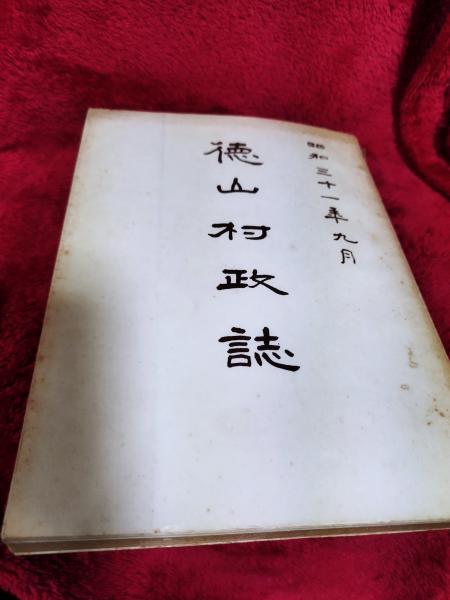 昭和三十一年九月
徳山村政誌